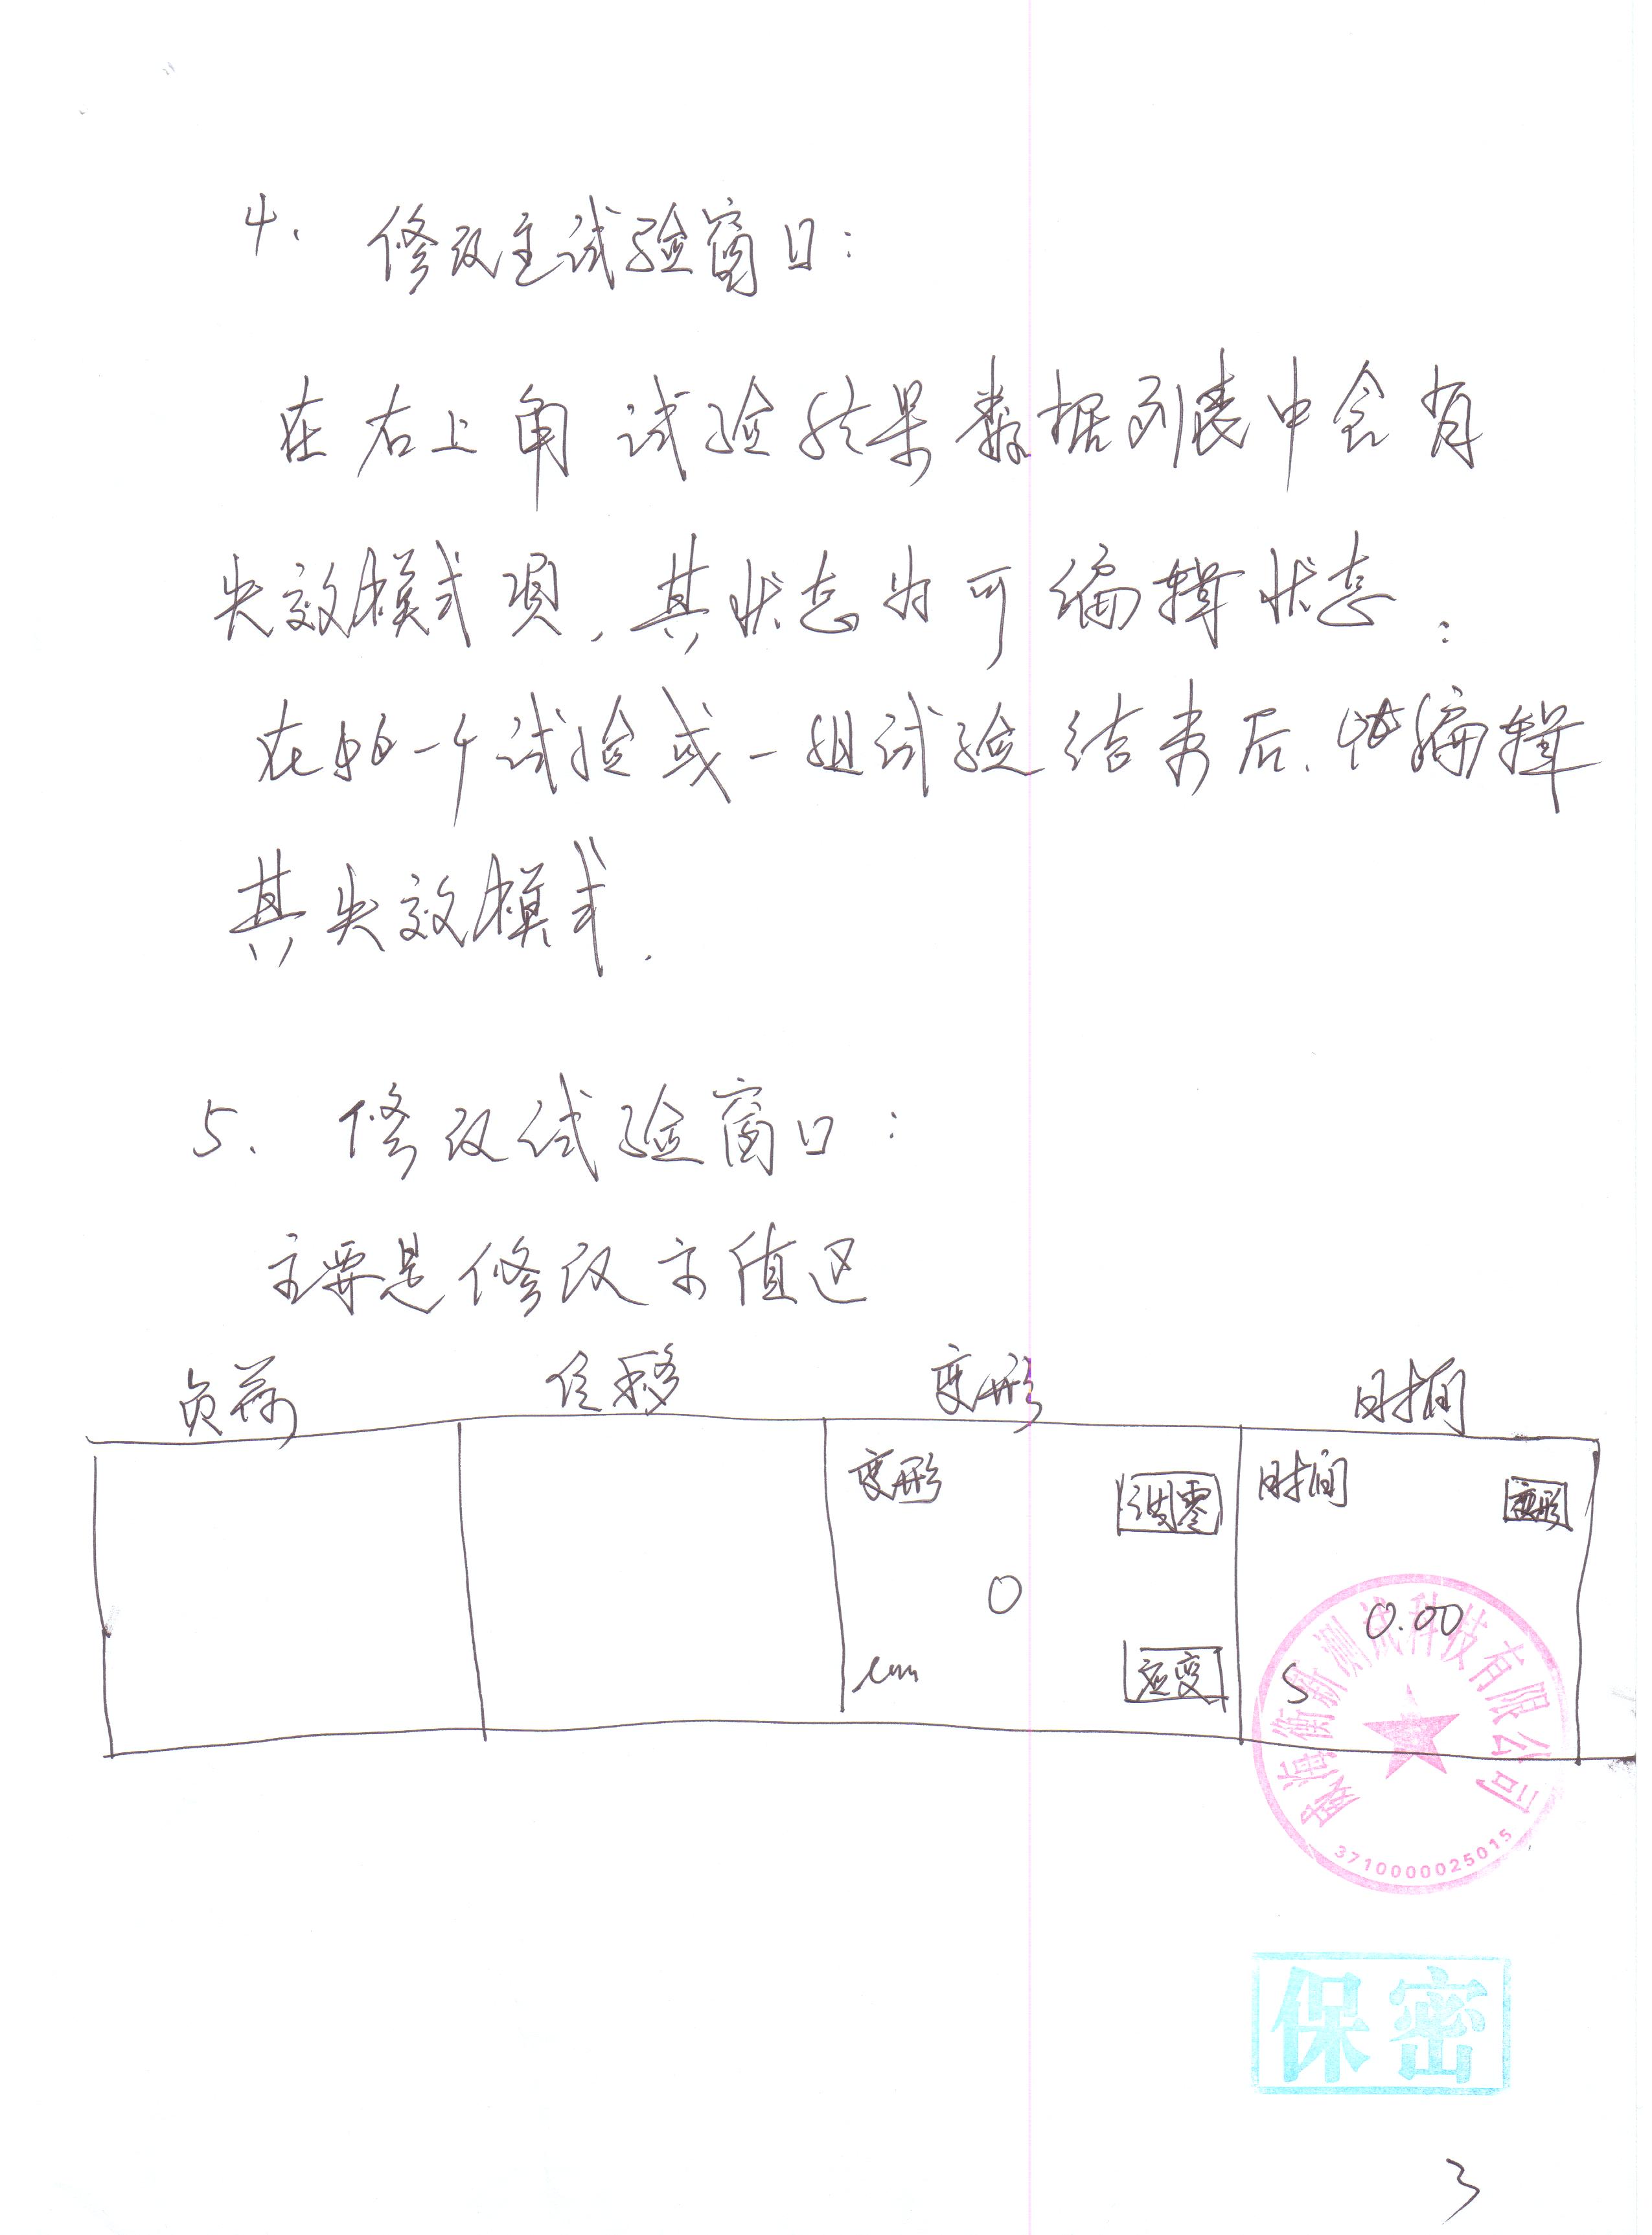 4. 修改主试验窗口:
在右上角试验结果数据列表中会有
失效模式项,其状态为可编辑状态.
在做一个试验或一组试验结束后.编辑
其失效模式.
5. 修改试验窗口:
主要是修改示值区
负荷 位移 变形 时间
变形 调零 时间 变形
0 0.00
应变 S
威海衡新测试科技有限公司
3710000025015
保密
3